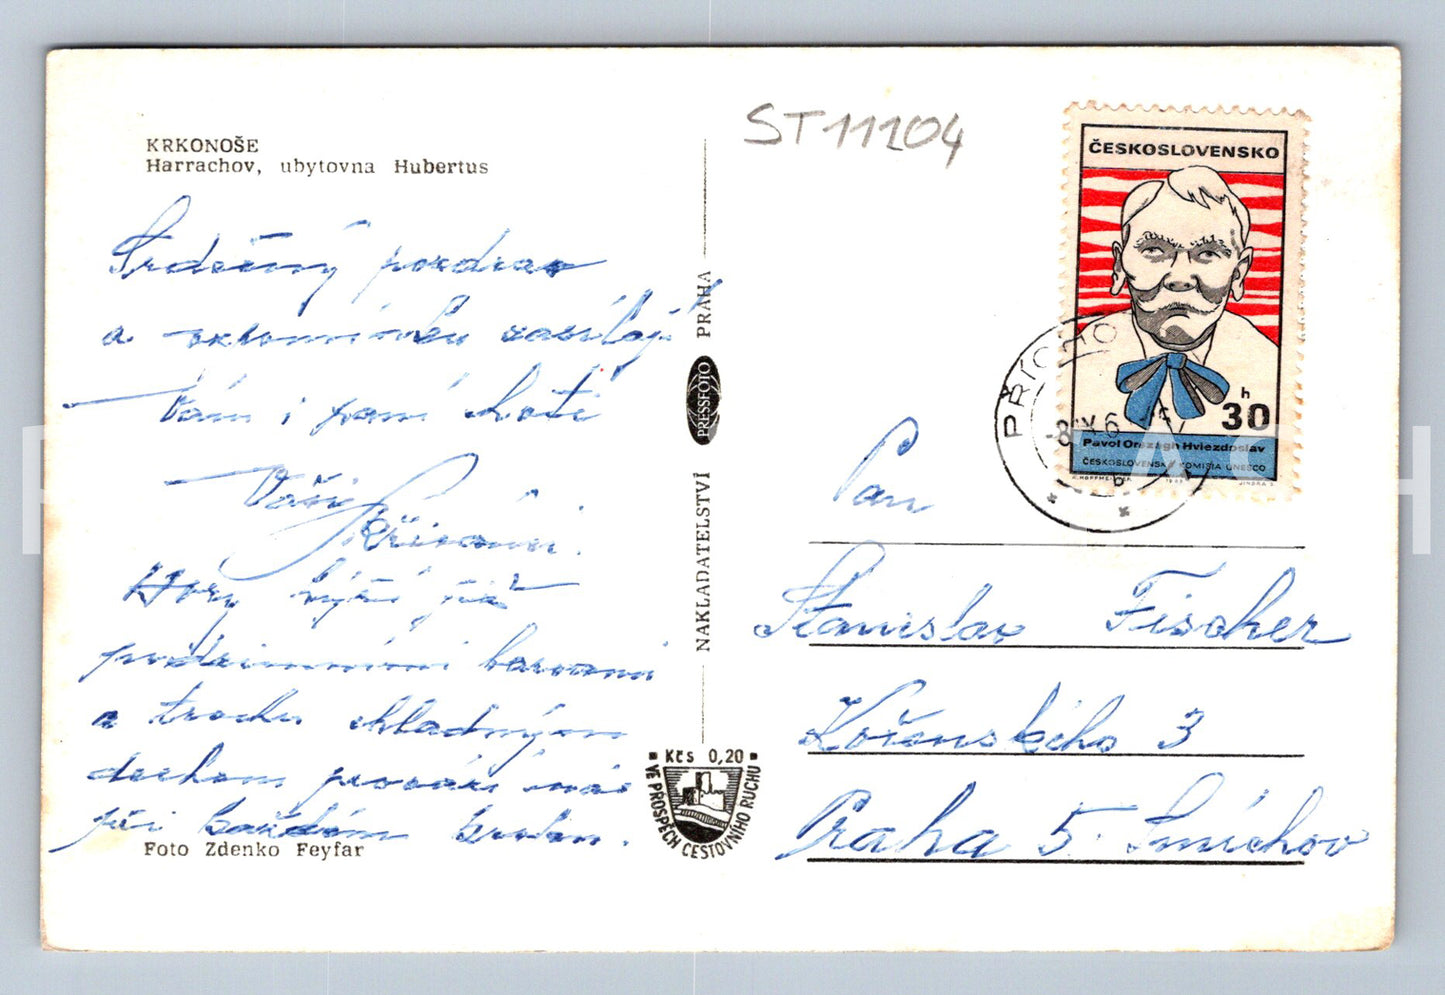 KRKONOŠE
Harrachov, ubytovna Hubertus
Srdečný pozdrav
a vzpomínku zasílají
Vám i paní choti
Vaši
Hory hýří již
podzimními barvami
a trochu chladným
dechem provází nás
při každém kroku.
Foto Zdenko Feyfar
NAKLADATELSTVÍ PRESSFOTO PRAHA
Kčs 0,20
VE PROSPĚCH CESTOVNÍHO RUCHU
ST11204
ČESKOSLOVENSKO
30 h
Pavol Országh Hviezdoslav
ČESKOSLOVENSKÁ KOMISIA UNESCO
Pan
Stanislav Fischer
Kořenského 3
Praha 5. Smíchov